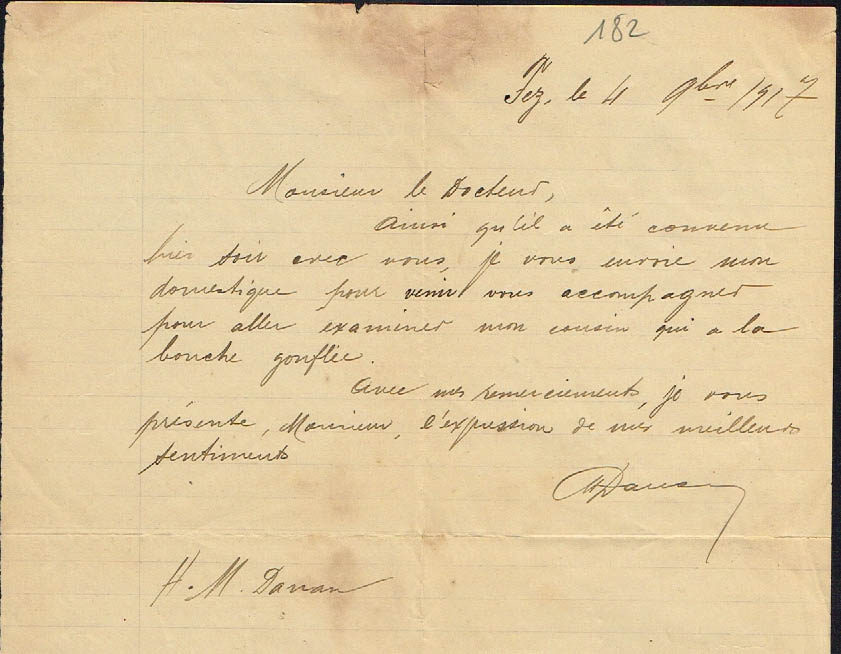 182
Fez, le 4 9bre 1917
Monsieur le Docteur,
Ainsi qu'il a été convenu
hier soir avec vous, je vous envoie mon
domestique pour venir vous accompagner
pour aller examiner mon cousin qui a la
bouche gonflée.
Avec mes remerciements, je vous
présente, Monsieur, l'expression de mes meilleurs
sentiments
H. M.